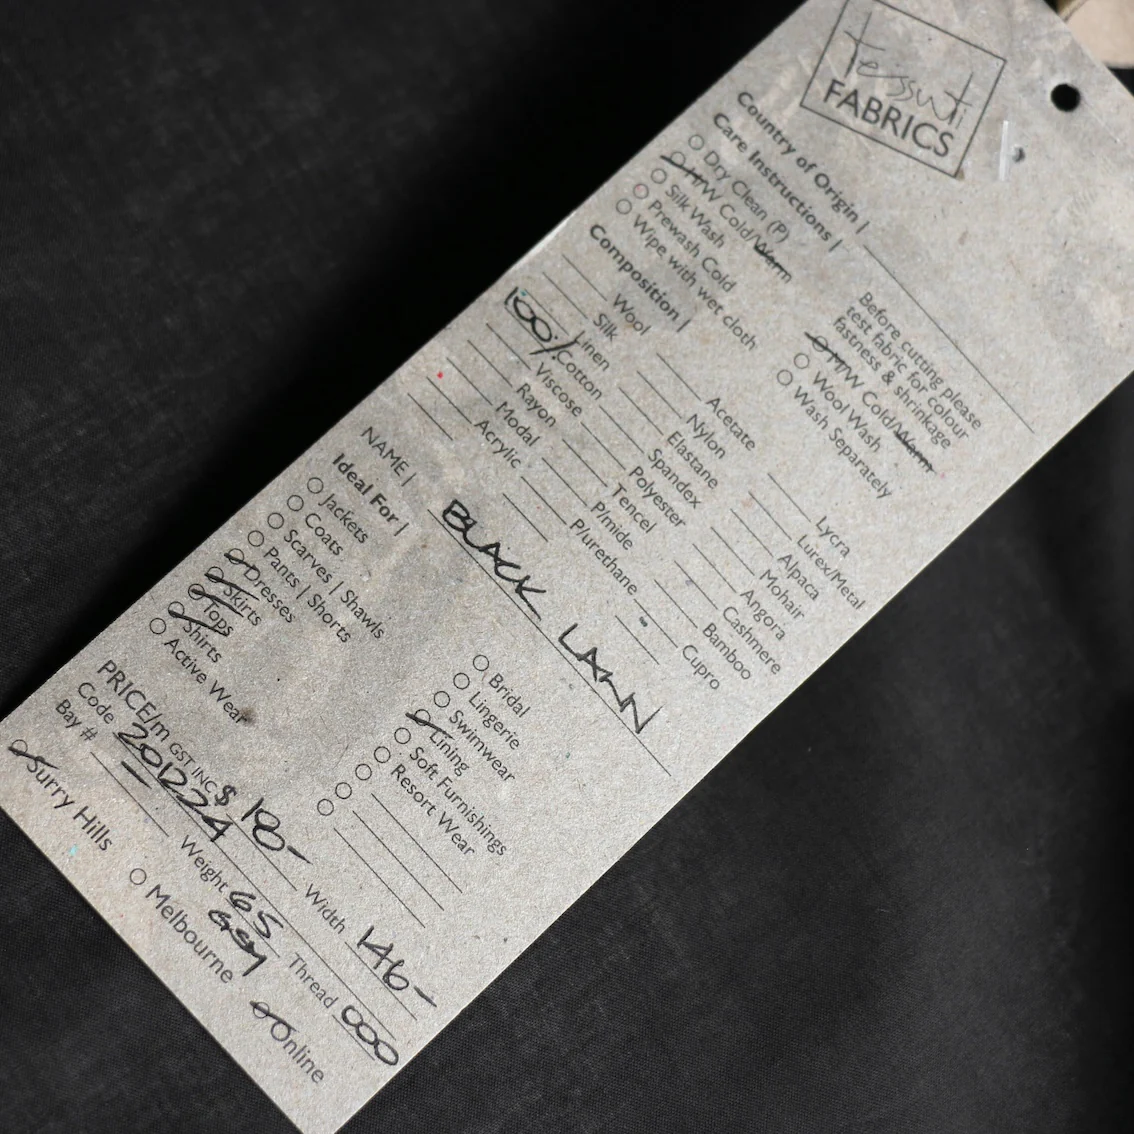 Tessuti
FABRICS
Country of Origin |
Care Instructions |
Dry Clean (P)
H/W Cold/Warm
Silk Wash
Prewash Cold
Wipe with wet cloth
Before cutting please
test fabric for colour
fastness & shrinkage
M/W Cold/Warm
Wool Wash
Wash Separately
Composition |
Wool
Silk
Linen
100% Cotton
Viscose
Rayon
Modal
Acrylic
Acetate
Nylon
Elastane
Spandex
Polyester
Tencel
P/mide
P/urethane
Lycra
Lurex/Metal
Alpaca
Mohair
Angora
Cashmere
Bamboo
Cupro
NAME | BLACK LAWN
Ideal For |
Jackets
Coats
Scarves | Shawls
Pants | Shorts
Dresses
Skirts
Tops
Shirts
Active Wear
Bridal
Lingerie
Swimwear
Lining
Soft Furnishings
Resort Wear
PRICE/m GST INC $ 18- Width 146-
Code 201224 Weight 65 Thread 000
GSM
Bay #
Surry Hills Melbourne Online